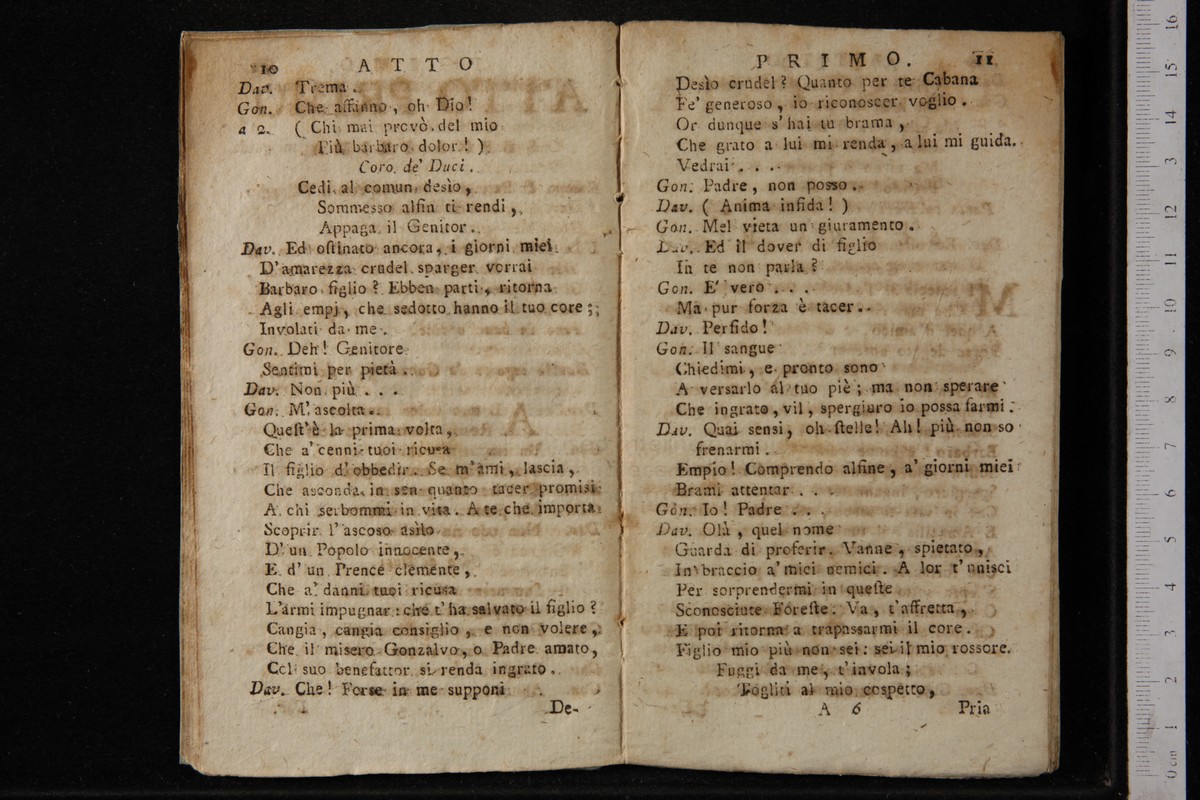 10 ATTO
Dav. Trema.
Gon. Che affanno, oh Dio!
a 2. ( Chi mai provò del mio
Più barbaro dolor! )
Coro de' Duci.
Cedi al comun desìo,
Sommesso alfin ti rendi,
Appaga il Genitor.
Dav. Ed oſtinato ancora, i giorni miei
D'amarezza crudel sparger vorrai
Barbaro figlio? Ebben parti, ritorna
Agli empj, che sedotto hanno il tuo core;
Involati da me.
Gon. Deh! Genitore
Sentimi per pietà.
Dav. Non più . . .
Gon. M'ascolta.
Queſt'è la prima volta,
Che a' cenni tuoi ricusa
Il figlio d'obbedir. Se m'ami, lascia,
Che asconda in sen quanto tacer promisi
A chi serbommi in vita. A te che importa
Scoprir l'ascoso asìlo
D'un Popolo innocente,
E d'un Prence clemente,
Che a' danni tuoi ricusa
L'armi impugnar: che t'ha salvato il figlio?
Cangia, cangia consiglio, e non volere,
Che il misero Gonzalvo, o Padre amato,
Col suo benefattor si renda ingrato.
Dav. Che! Forse in me supponi
De-
PRIMO. 11
Desìo crudel? Quanto per te Cabana
Fe' generoso, io riconoscer voglio.
Or dunque s'hai tu brama,
Che grato a lui mi renda, a lui mi guida.
Vedrai . . .
Gon. Padre, non posso.
Dav. ( Anima infida! )
Gon. Mel vieta un giuramento.
Dav. Ed il dover di figlio
In te non parla?
Gon. E' vero . . .
Ma pur forza è tacer..
Dav. Perfido!
Gon. Il sangue
Chiedimi, e pronto sono
A versarlo al tuo piè; ma non sperare
Che ingrato, vil, spergiuro io possa farmi.
Dav. Quai sensi, oh ſtelle! Ah! più non so
frenarmi.
Empio! Comprendo alfine, a' giorni miei
Brami attentar . . .
Gon. Io! Padre . . .
Dav. Olà, quel nome
Guarda di proferir. Vanne, spietato,
In braccio a' miei nemici. A lor t'unisci
Per sorprendermi in queſte
Sconosciute Foreſte. Va, t'affretta,
E poi ritorna a trapassarmi il core.
Figlio mio più non sei: sei il mio rossore.
Fuggi da me, t'invola;
Togliti al mio cospetto,
A 6 Pria
0 cm 1 2 3 4 5 6 7 8 9 10 11 12 13 14 15 16